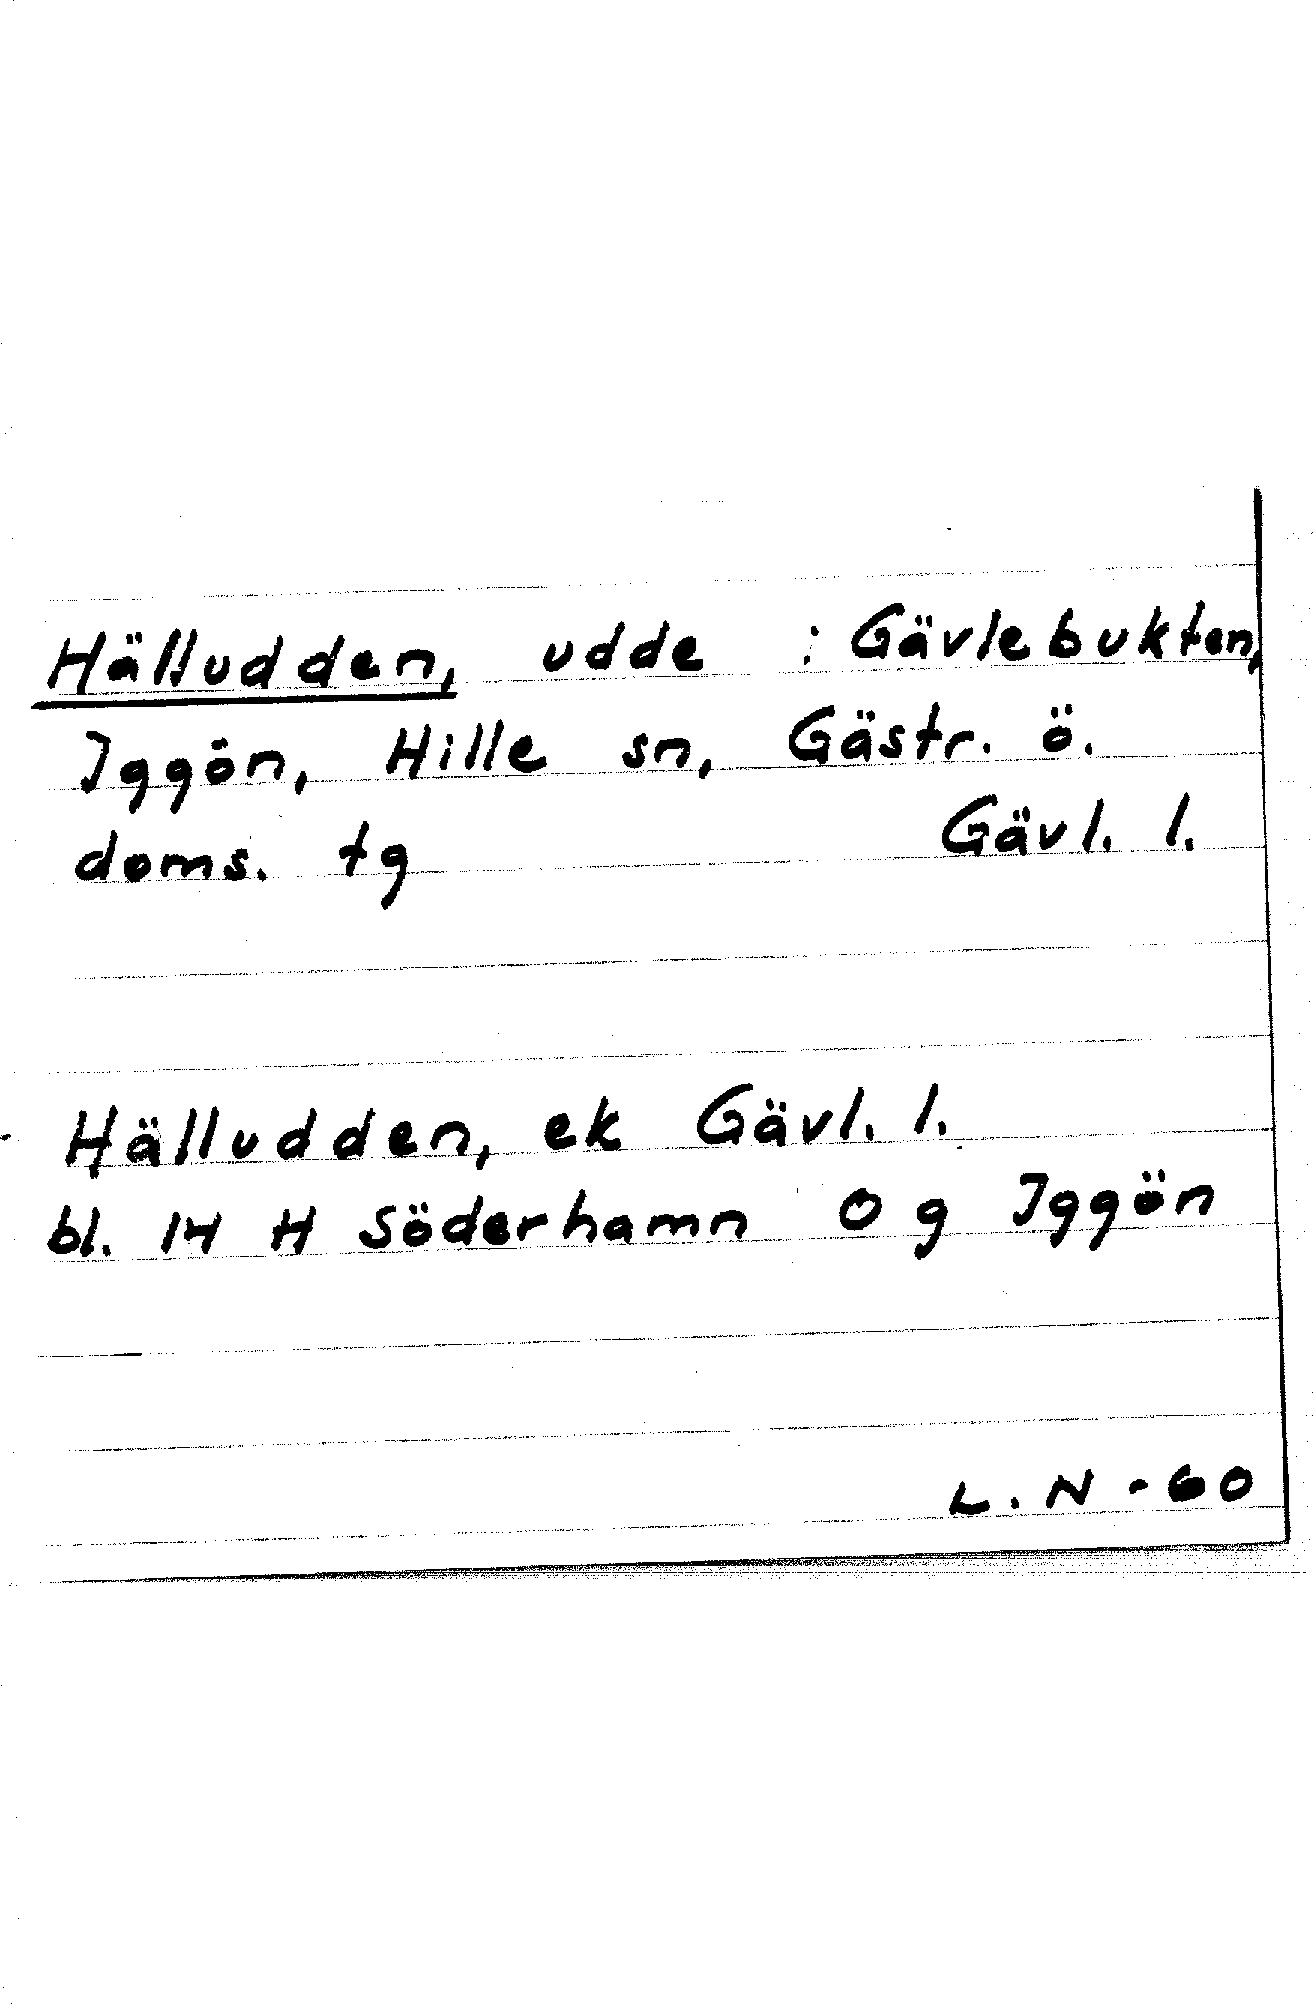 Hälludden, udde i Gävlebukten,
Iggön, Hille sn, Gästr. ö.
doms. tg Gävl. l.
Hälludden, ek Gävl. l.
bl. 14 H Söderhamn O g Iggön
L. N - 60